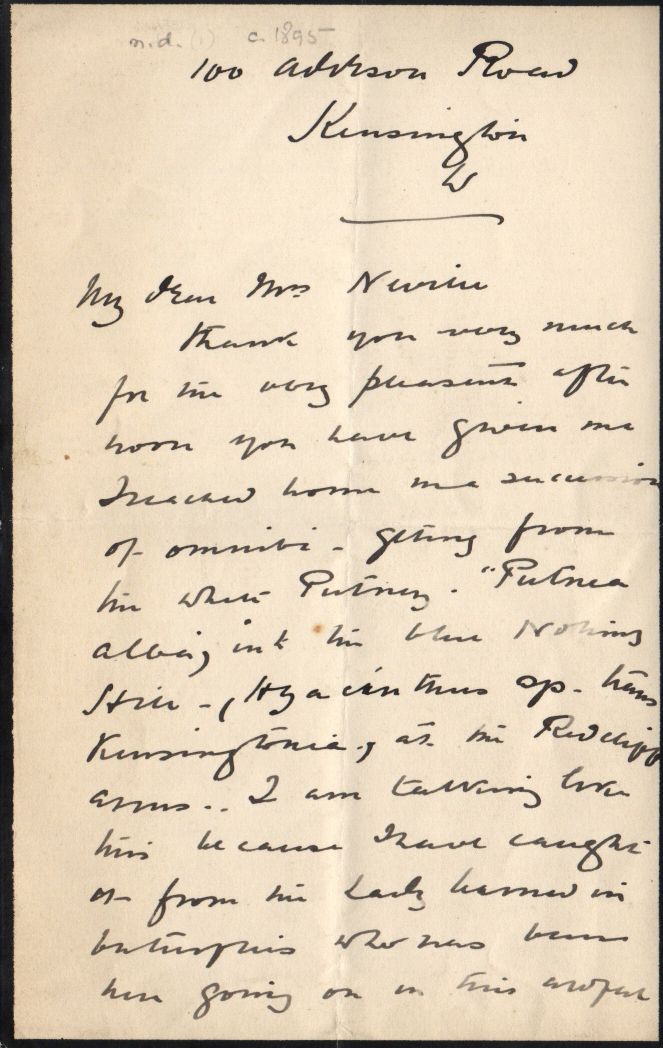 n.d. (1) c. 1895
100 Addison Road
Kensington
W
My dear Mrs Nevill
Thank you very much
for the very pleasant after
noon you have given me
I reached home in a succession
of omnibi - getting from
the white Putney. "Putnea
alba", into the blue Notting
Hill -, (Hyacinthus sp. trans
Kensingtonia, at the Redcliff
arms.. I am talking like
this because I have caught
it from the Lady learned in
butterflies who has been
here going on in this awful